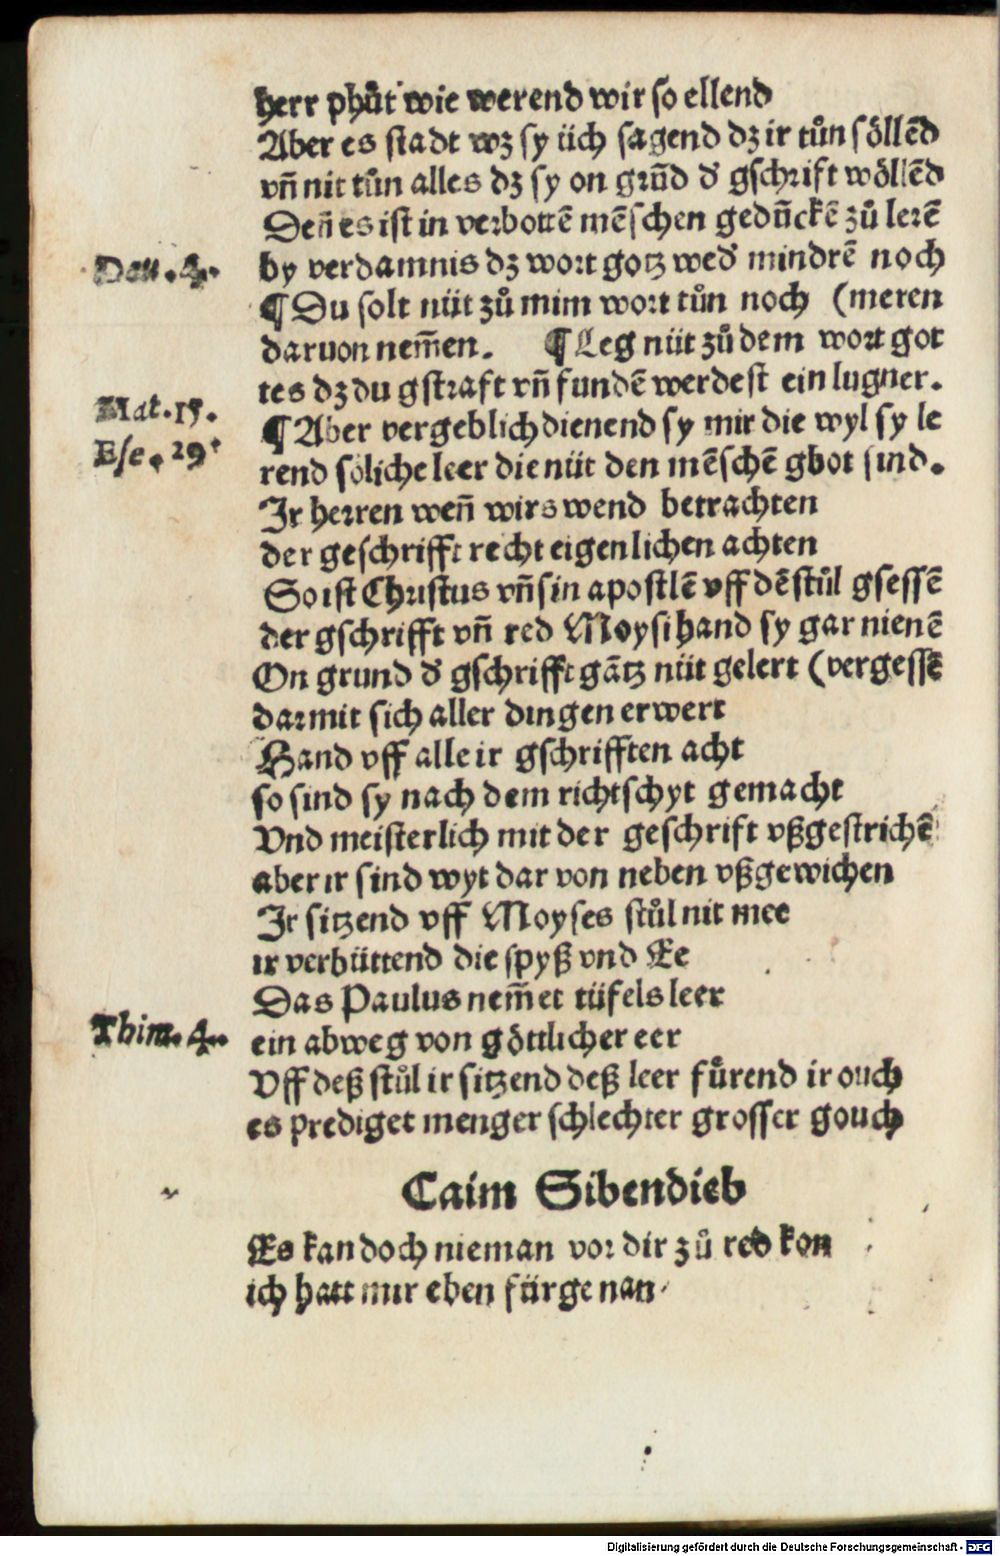 herr phuͦt wie werend wir so ellend
Aber es stadt wz sy üch sagend dz ir tuͦn söllēd
vn̄ nit tuͦn alles dz sy on grūd d' gschrift wöllēd
Den̄ es ist in verbottē mēschen gedūckē zuͦ lerē
Deu. 4.
by verdamnis dz wort gotz wed' mindrē noch
¶ Du solt nüt zuͦ mim wort tuͦn noch (meren
daruon nem̄en. ¶ Leg nüt zuͦ dem wort got
tes dz du gstraft vn̄ fundē werdest ein lugner.
Mat. 15.
¶ Aber vergeblich dienend sy mir die wyl sy le
Ese. 29.
rend söliche leer die nüt den mēschē gbot sind.
Ir herren wen̄ wirs wend betrachten
der geschrifft recht eigenlichen achten
So ist Christus vn̄ sin apostlē vff dē stuͦl gsessē
der gschrifft vn̄ red Moysi hand sy gar nienē
On grund d' gschrifft gātz nüt gelert (vergessē
darmit sich aller dingen erwert
Hand vff alle ir gschrifften acht
so sind sy nach dem richtschyt gemacht
Vnd meisterlich mit der geschrift vßgestrichē
aber ir sind wyt dar von neben vßgewichen
Ir sitzend vff Moyses stuͦl nit mee
ir verbüttend die spyß vnd Ee
Das Paulus nem̄et tüfels leer
Thim. 4.
ein abweg von göttlicher eer
Vff deß stuͦl ir sitzend deß leer fuͤrend ir ouch
es prediget menger schlechter grosser gouch
Caim Sibendieb
Es kan doch nieman vor dir zuͦ red kon
ich hatt mir eben fürgenan
Digitalisierung gefördert durch die Deutsche Forschungsgemeinschaft - DFG